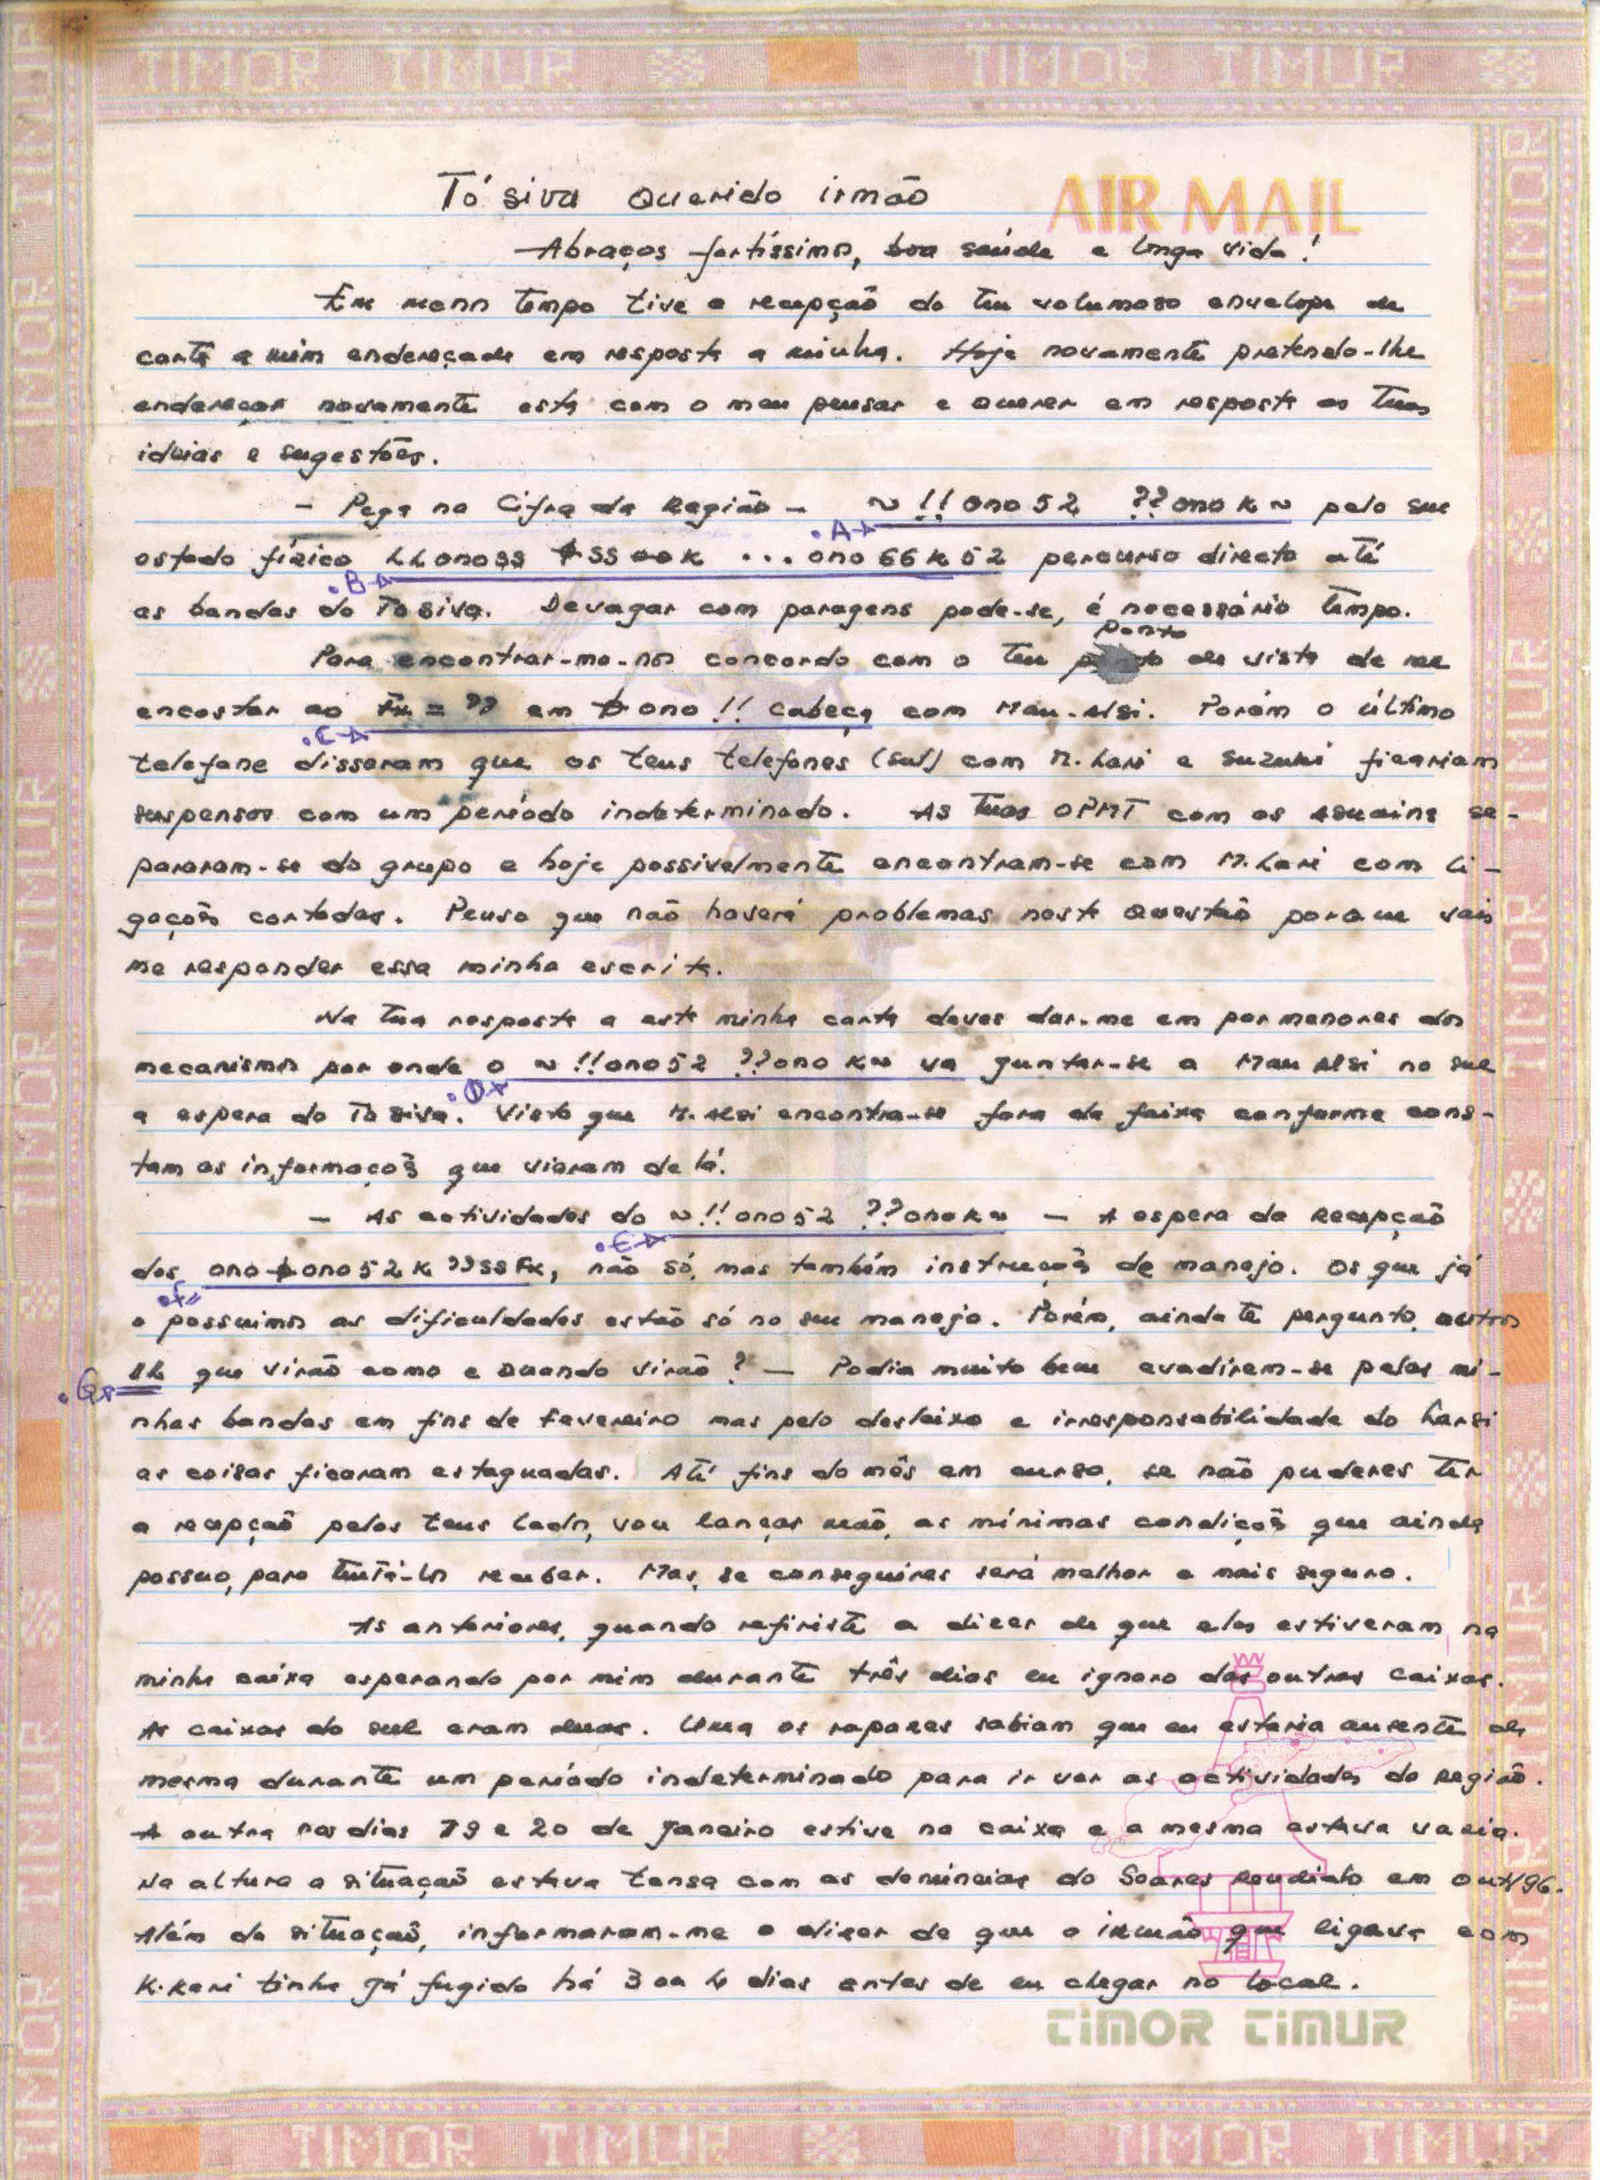 TIMOR TIMUR TIMOR TIMUR
AIR MAIL
Tó siva Querido irmão
Abraços fortíssimos, boa saúde e longa vida!
Em menos tempo tive a recepção do teu volumoso envelope de
carta a mim endereçada em resposta a minha. Hoje novamente pretendo-lhe
endereçar novamente esta com o meu pensar e querer em resposta as tuas
ideias e sugestões.
- Pega na Cifra da Região - ~ !! ono 52 ??ono K ~ pelo seu
.A
estado físico LLono33 $ss K ... ono 66 K 52 percurso directo até
.B
as bandas do Tó siva. Devagar com paragens pode-se, é necessário tempo.
ponto
Para encontrar-mo-nos concordo com o teu de vista de me
encostar ao Fx = ?? em $ ono !! cabeça com Mau-Alsi. Porém o último
.C
telefone disseram que os teus telefones (sul) com M. Lari e Suzuki ficariam
suspensos com um período indeterminado. As tuas OPMT com os assuains se-
pararam-se do grupo e hoje possivelmente encontram-se com M. Lari com li-
gações cortadas. Penso que não haverá problemas nesta questão porque vais
me responder essa minha escrita.
Na tua resposta a esta minha carta deves dar-me em pormenores dos
mecanismos por onde o ~ !!ono52 ??ono K~ va juntar-se a Mau Alsi no sul
.D
a espera do Tó siva. Visto que M. Alsi encontra-se fora da faixa conforme cons-
tam as informações que vieram de lá.
- As actividades do ~ !!ono52 ??onoK~ - A espera da Recepção
.E
dos ono$ono52K ??ssFx, não só, mas também instruções de manejo. Os que já
.F
o possuimos as dificuldades estão só no seu manejo. Porém, ainda te pergunto, outros
.G
que virão como e quando virão? - Podia muito bem evadirem-se pelas mi-
nhas bandas em fins de Fevereiro mas pelo desleixo e irresponsabilidade do Larsi
as coisas ficaram estaguadas. Até fins do mês em curso, se não puderes ter
a recepção pelos teus lados, vou lançar mão, as mínimas condições que ainda
possuo, para tentá-los receber. Mas, se conseguires será melhor e mais seguro.
As anteriores, quando refiriste a dizer de que eles estiveram na
minha caixa esperando por mim durante três dias eu ignoro das outras caixas.
As caixas do sul eram duas. Uma os rapazes sabiam que eu estaria ausente da
mesma durante um período indeterminado para ir ver as actividades da Região.
A outra nos dias 19 e 20 de Janeiro estive na caixa e a mesma estava vazia.
Na altura a situação estava tensa com as denúncias do Soares Rendido em out/96.
Além da situação, informaram-me a dizer de que o irmão que ligava com
K. Keri tinha já fugido há 3 ou 4 dias antes de eu chegar no local.
TIMOR TIMUR
TIMOR TIMUR TIMOR TIMUR